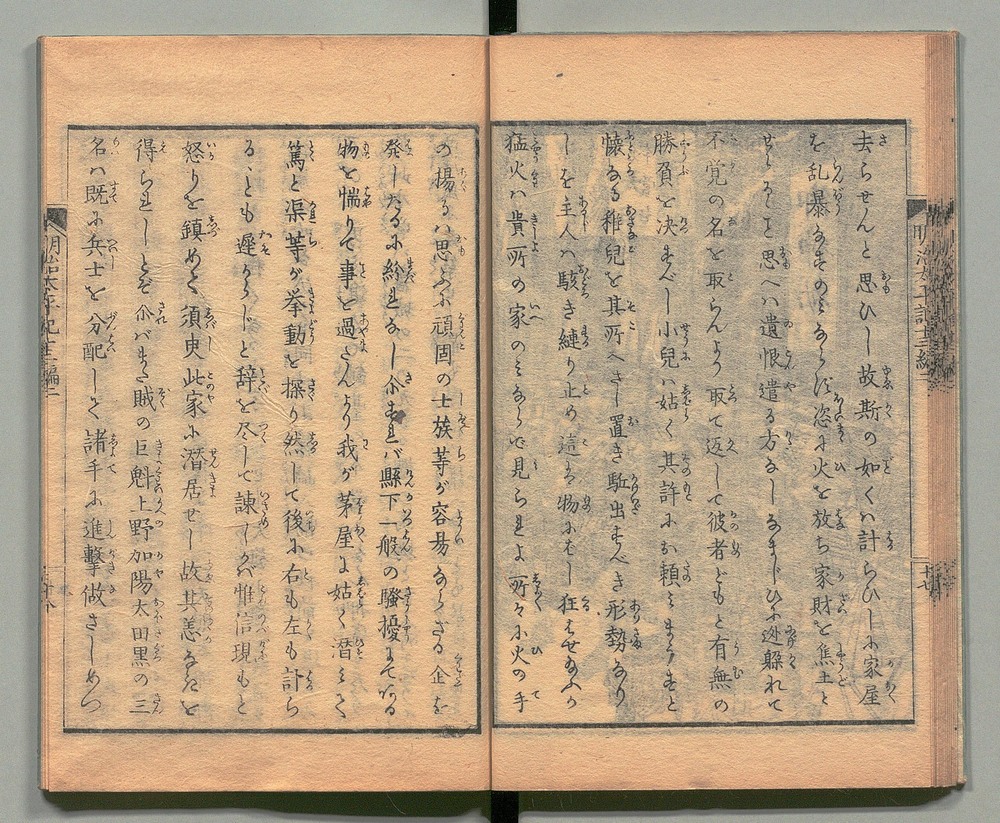 去らせんと思ひし故斯の如くハ計らひしに家屋
を乱暴なすのみならず恣に火を放ち家財を焦土と
せしかと思へハ遺恨遣る方なしなまじひに迯躱れて
不覚の名を取らんより取て返して彼者どもと有無の
勝負を決すべし小兒ハ姑く其許にお頼みまうすと
懐なる稚兒を其所へさし置き駈出すべき形勢なり
しを主人ハ駭き縺り止め這ハ物にもし狂はせなふか
猛火ハ貴所の家のみならで見られよ所々に火の手
の揚るハ思ふに頑固の士族等が容易ならざる企を
発したるに紛れなし尒すれバ縣下一般の騒擾にている
物を惴りて事を過たんより我が茅屋に姑く潜みて
篤と渠等が挙動を探り然して後に右も左も計ら
るゝとも遲からじと辞を尽して諌しかバ惟信現もと
怒りを鎮めて須臾此家に潜居せし故其恙なきを
得られしとぞ尒バまた賊の巨魁上野加陽太田黒の三
名ハ既に兵士を分配して諸手に進撃做さしめつ
明治太平記十三編二